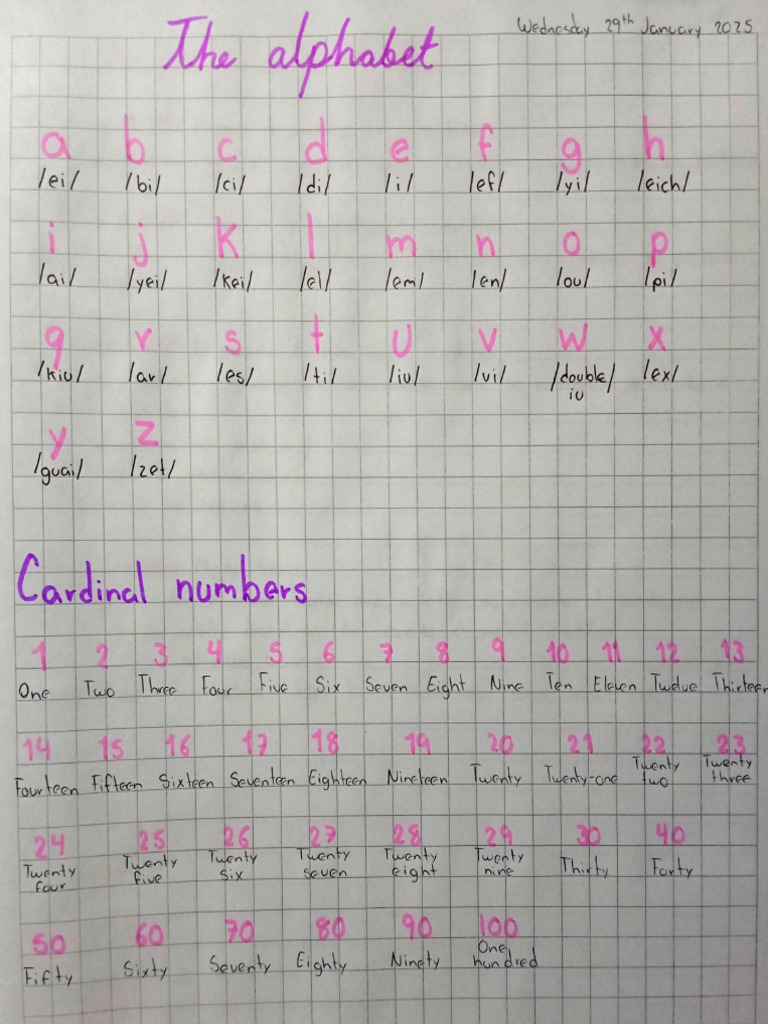 Wednesday 29th January 2025
The alphabet
a b c d e f g h
/ei/ /bi/ /ci/ /di/ /i/ /ef/ /yi/ /eich/
i j k l m n o p
/ai/ /yei/ /kei/ /el/ /em/ /en/ /ou/ /pi/
q r s t u v w x
/kiu/ /ar/ /es/ /ti/ /iu/ /vi/ /double iu/ /ex/
y z
/guai/ /zet/
Cardinal numbers
1 2 3 4 5 6 7 8 9 10 11 12 13
One Two Three Four Five Six Seven Eight Nine Ten Eleven Twelve Thirteen
14 15 16 17 18 19 20 21 22 23
Fourteen Fifteen Sixteen Seventeen Eighteen Nineteen Twenty Twenty-one Twenty two Twenty three
24 25 26 27 28 29 30 40
Twenty four Twenty five Twenty six Twenty seven Twenty eight Twenty nine Thirty Forty
50 60 70 80 90 100
Fifty Sixty Seventy Eighty Ninety One hundred